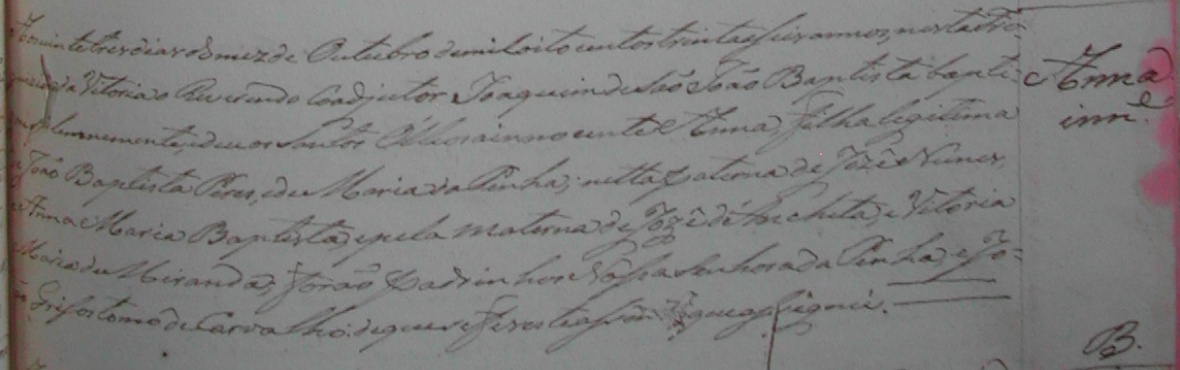 Aos vinte tres dias do mez de Outubro de mil oito centos trinta e seis annos, nesta Fre-
guezia da Vitoria o Reverendo Coadjutor Joaquim de São João Baptista bapti-
solemnemente, e deu os Santos Oleos a innocente Anna, filha legitima
de João Baptista Pires, e de Maria da Penha; netta paterna de Jozê Nunes,
e Anna Maria Baptista, e pela materna de Jozê de Anchieta, e Vitoria
Maria de Miranda; forão Padrinhos Nossa Senhora da Penha, e Jo-
ão Grisostomo de Carvalho: de que se fez este assen que assignei.
Anna
inne.
B.